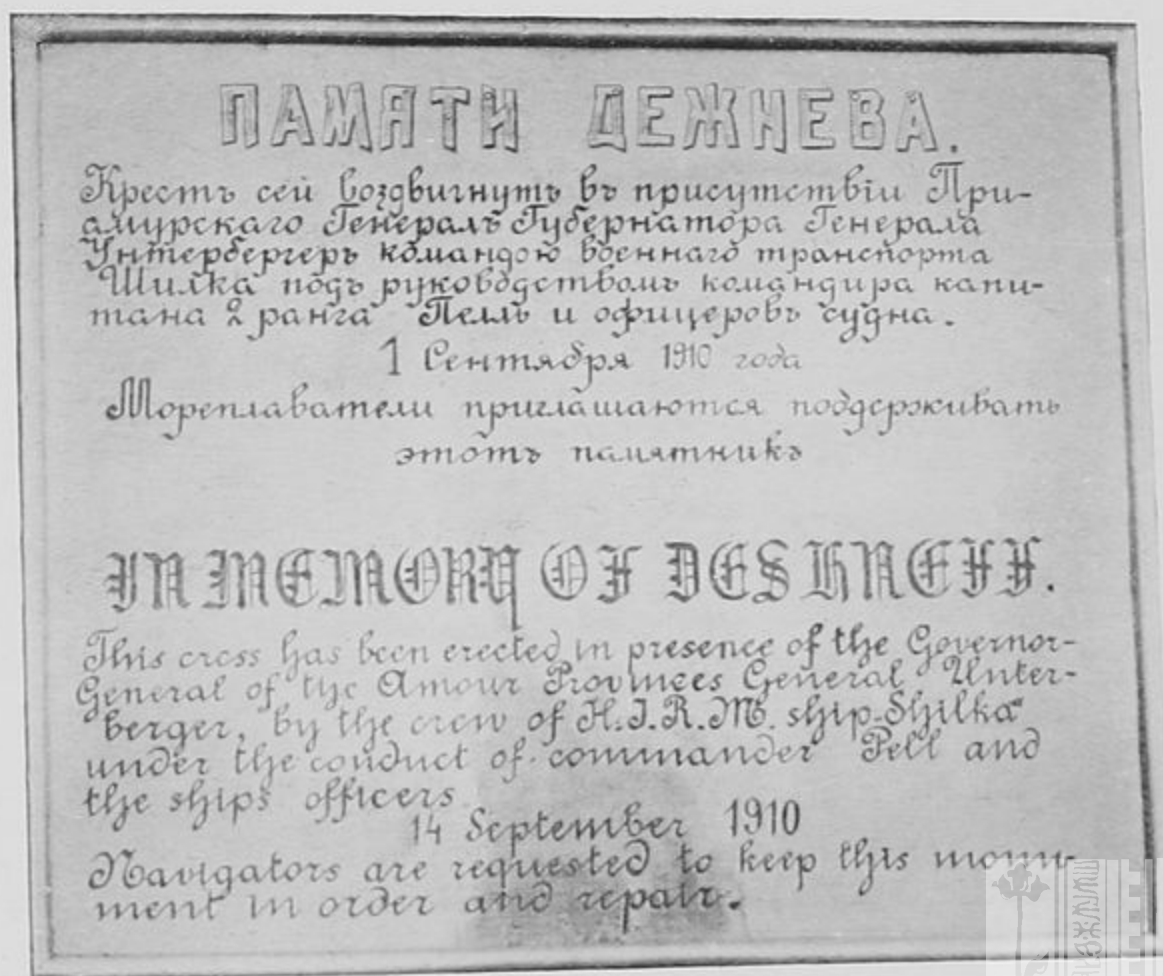 ПАМЯТИ ДЕЖНЕВА.
Крестъ сей воздвигнутъ въ присутствіи При-
амурскаго Генералъ Губернатора Генерала
Унтербергеръ командою военнаго транспорта
Шилка подъ руководствомъ командира капи-
тана 2 ранга Пелль и офицеровъ судна.
1 Сентября 1910 года
Мореплаватели приглашаются поддерживать
этотъ памятникъ
IN MEMORY OF DESHNEFF.
This cross has been erected in presence of the Governor-
General of the Amour Provinces General Unter-
berger, by the crew of H.I.R.M. ship „Shilka"
under the conduct of commander Pell and
the ships officers
14 September 1910
Navigators are requested to keep this monu-
ment in order and repair.